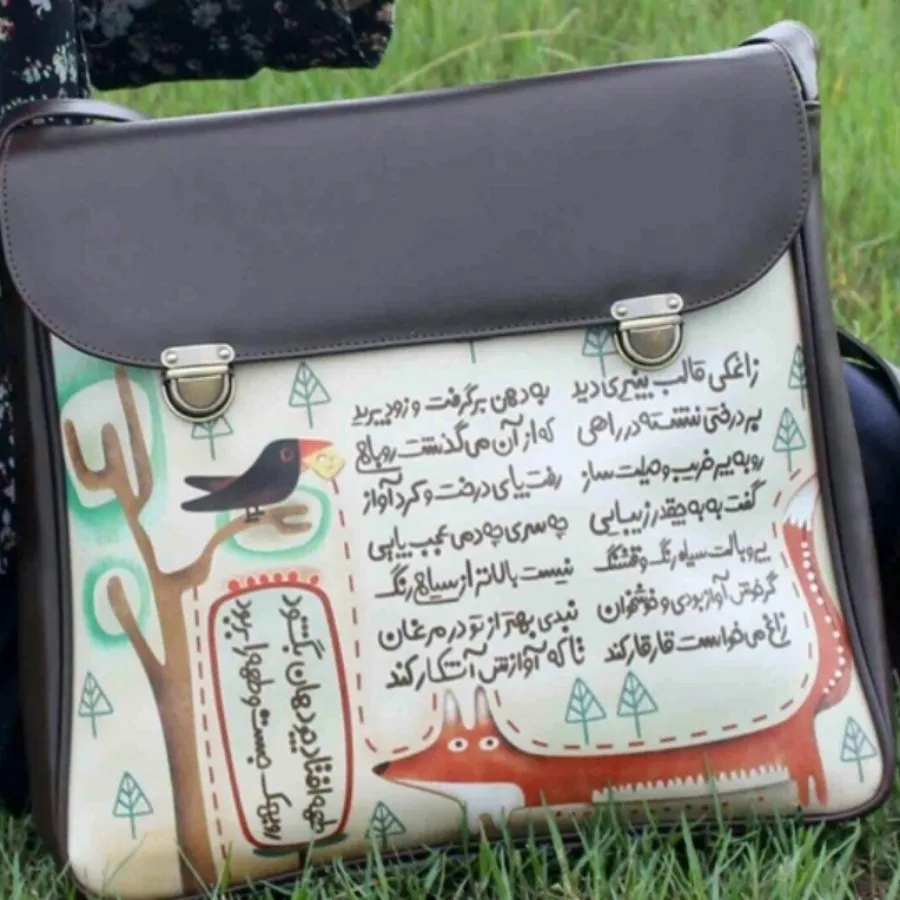 زاغکی قالب پنیری دید به دهن برگرفت و زود پرید
بر درختی نشسته در راهی که از آن می گذشت روباهی
روبه پر فریب و حیلت ساز رفت پای درخت و کرد آواز
گفت به به چقدر زیبایی چه سری چه دمی عجب پایی
پر و بالت سیاه رنگ و قشنگ نیست بالاتر از سیاهی رنگ
گر خوش آواز بودی و خوشخوان نبدی بهتر از تو در مرغان
زاغ می خواست قار قار کند تا که آوازش آشکار کند
طعمه افتاد چو دهان بگشود
روبهک جست و طعمه را بربود